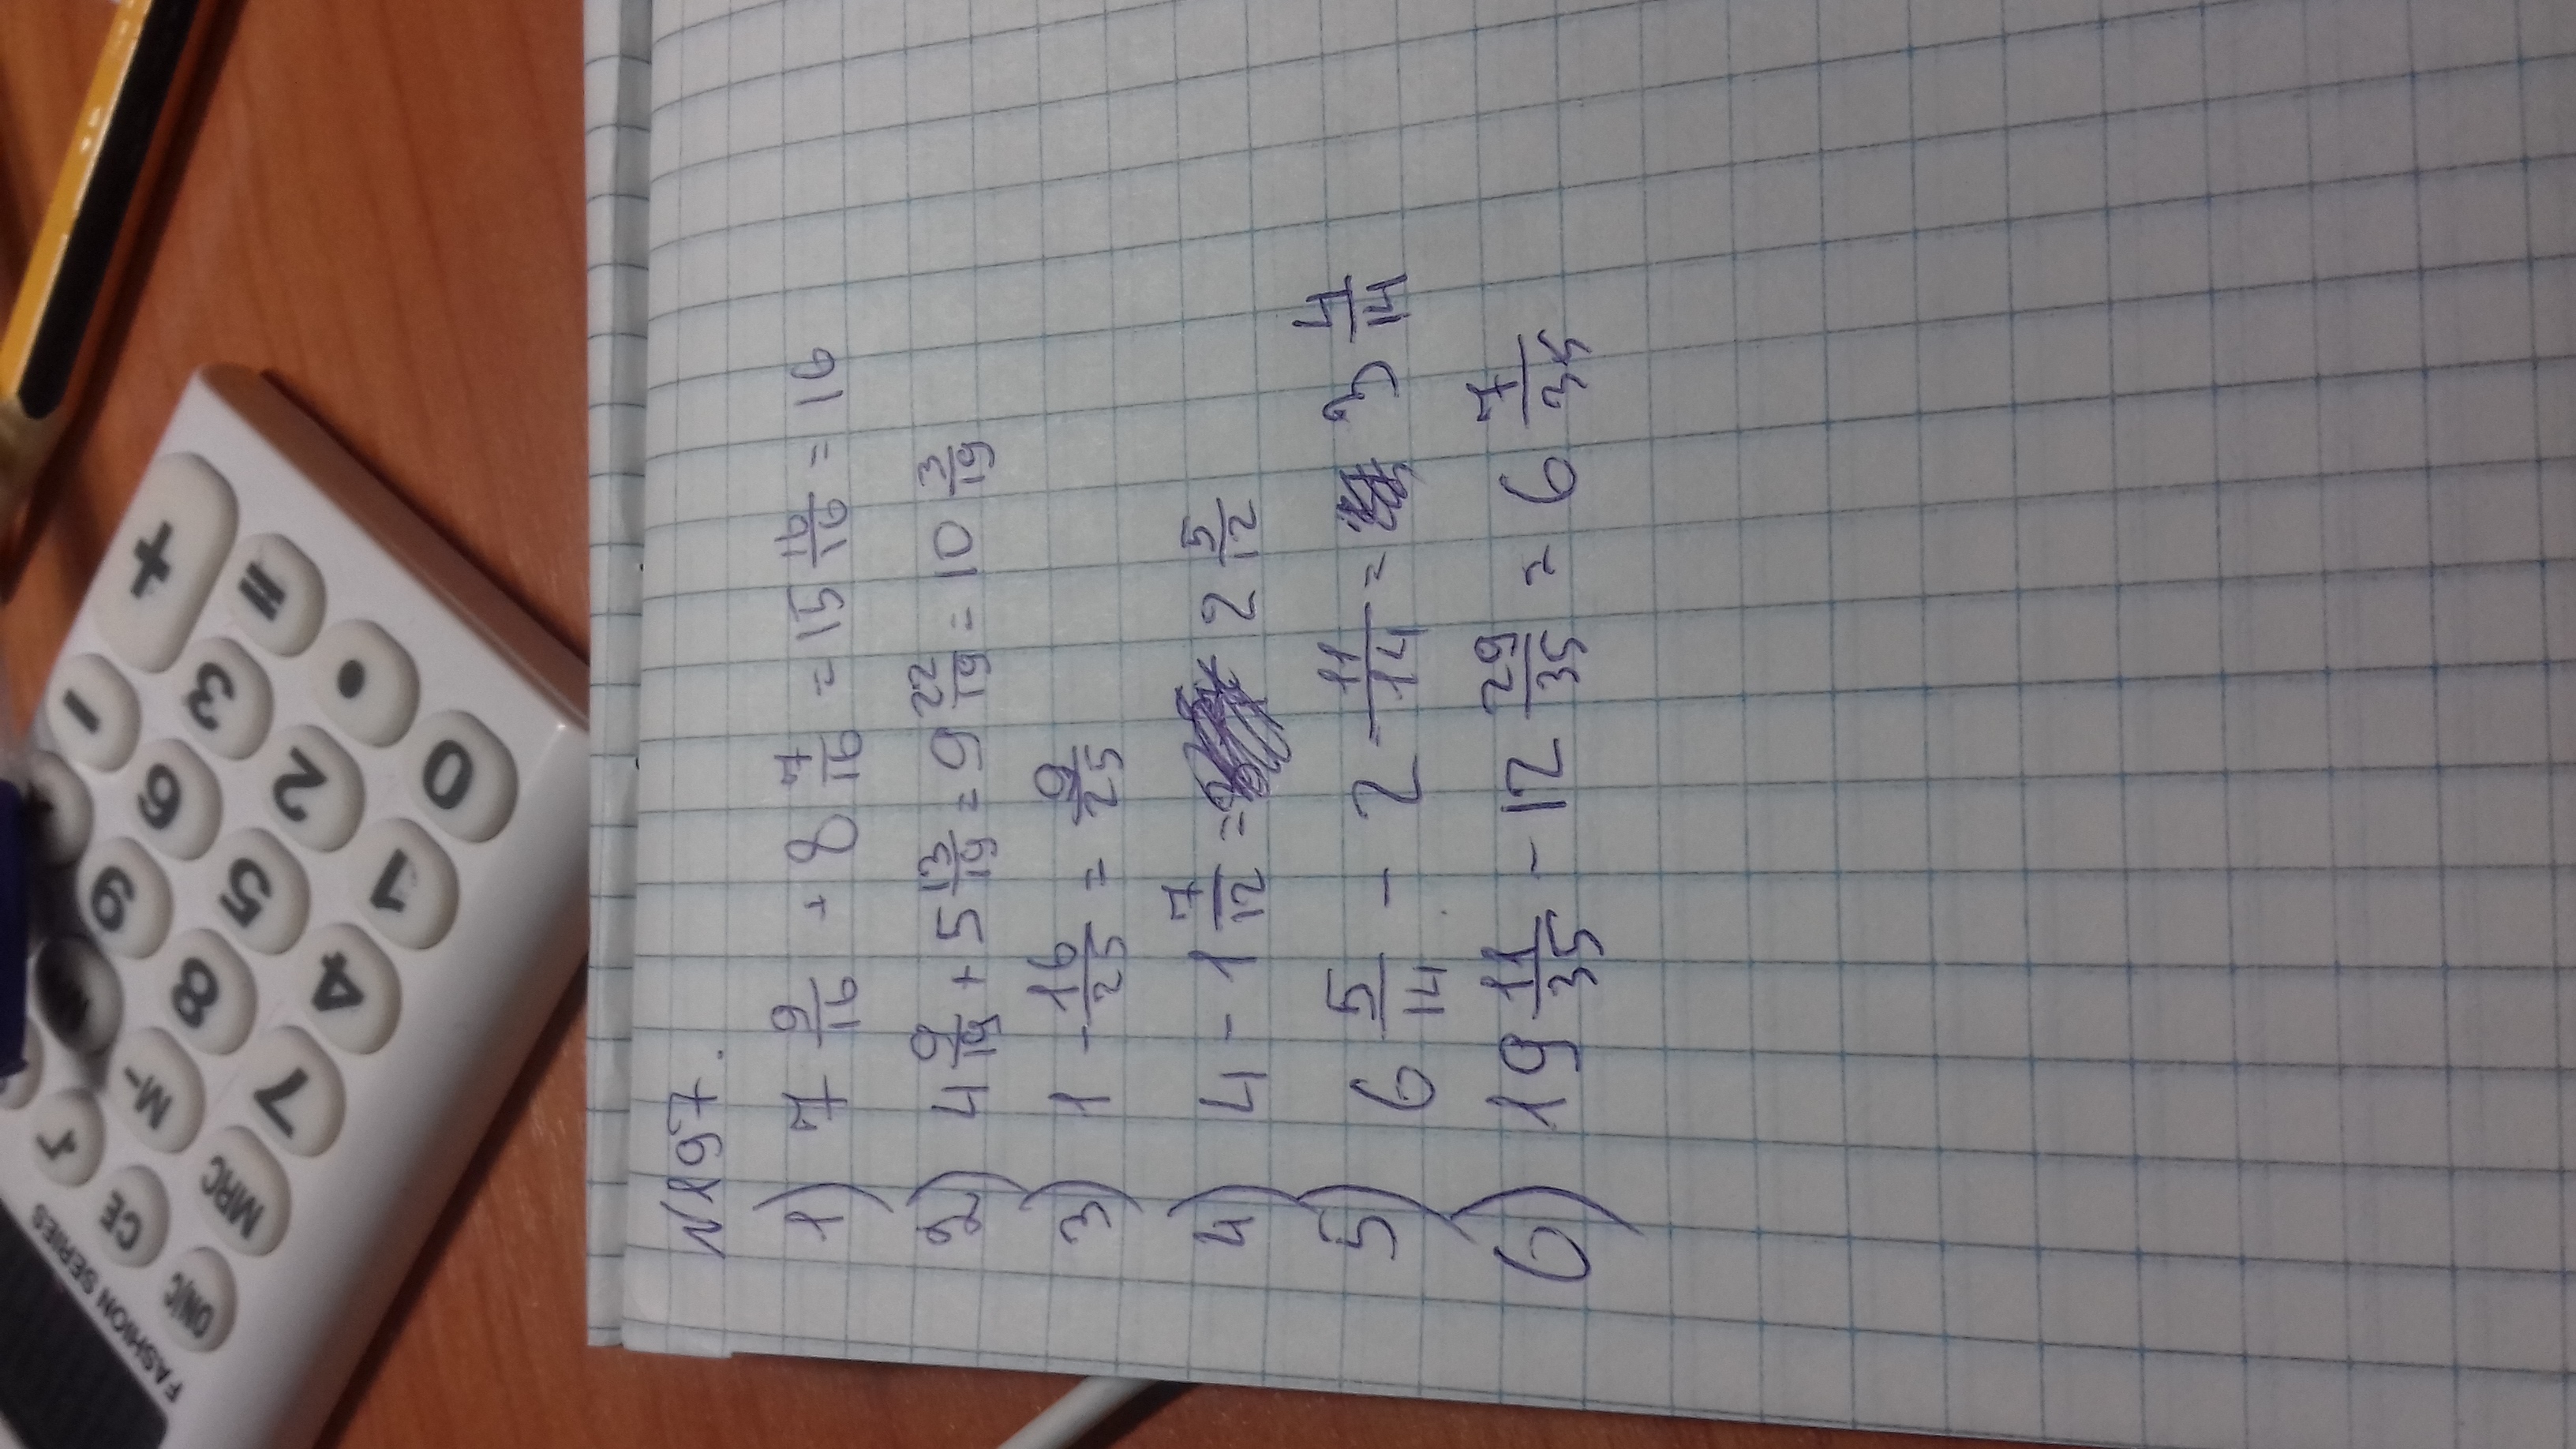 N197.
1) 7 9/16 + 8 7/16 = 15 16/16 = 16
2) 4 9/19 + 5 13/19 = 9 22/19 = 10 3/19
3) 1 - 16/25 = 9/25
4) 4 - 1 7/12 = 2 5/12
5) 6 5/14 - 2 - 11/14 = 3 4/14
6) 19 11/35 - 12 29/35 = 6 7/35
FASHION SERIES
ON/C CE √
MRC M-
7 8 9
4 5 6
1 2 3
0 • = +